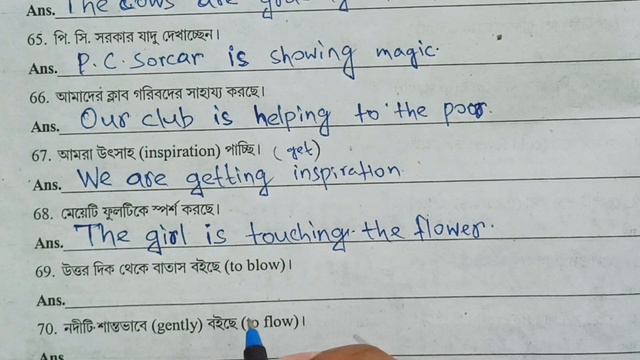 Ans. The cows are
65. পি. সি. সরকার যাদু দেখাচ্ছেন।
Ans. P.C. Sorcar is showing magic.
66. আমাদের ক্লাব গরিবদের সাহায্য করছে।
Ans. Our club is helping to the poor.
67. আমরা উৎসাহ (inspiration) পাচ্ছি। (get)
Ans. We are getting inspiration.
68. মেয়েটি ফুলটিকে স্পর্শ করছে।
Ans. The girl is touching the flower.
69. উত্তর দিক থেকে বাতাস বইছে (to blow)।
Ans.
70. নদীটি শান্তভাবে (gently) বইছে (to flow)।
Ans